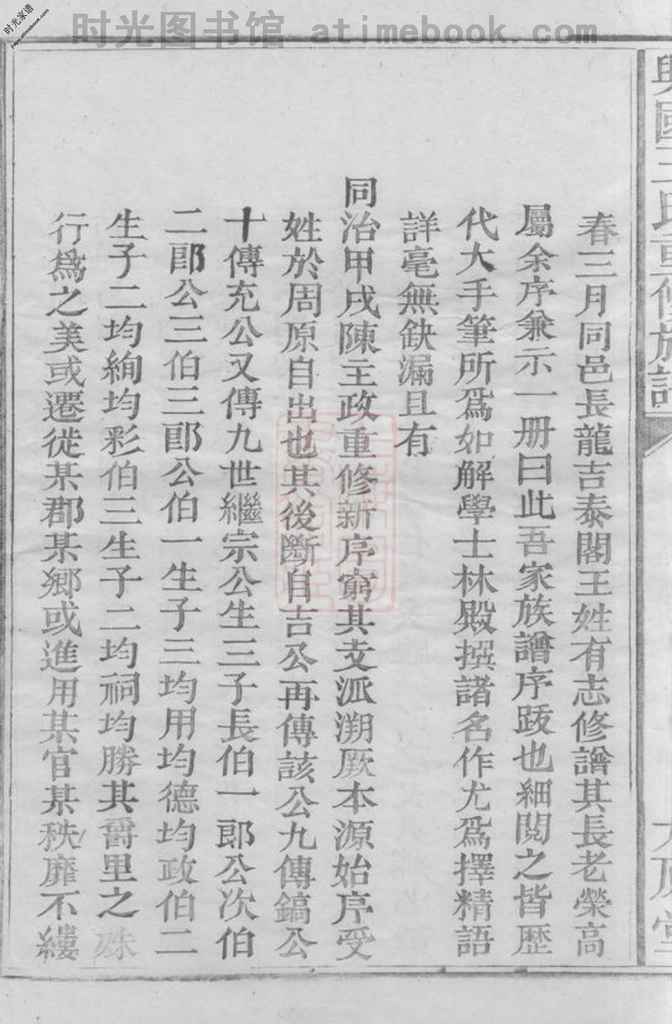 时光图书馆 atimebook.com
时光家谱
興國王氏重修族譜
春三月同邑長龍吉泰閣王姓有志修譜其長老榮高
屬余序兼示一册曰此吾家族譜序䟦也細閱之皆歷
代大手筆所爲如解學士林殿撰諸名作尤爲擇精語
詳毫無缺漏且有
同治甲戌陳王政重修新序窮其支派溯厥本源始序受
姓於周原自出也其後斷自吉公再傳該公九傳鎬公
十傳充公又傳九世繼宗公生三子長伯一郎公次伯
二郎公三伯三郎公伯一生子三均用均德均政伯二
生子二均絢均彩伯三生子二均祠均勝其爵里之殊
行爲之美或遷徙某郡某鄉或進用某官某秩靡不縷